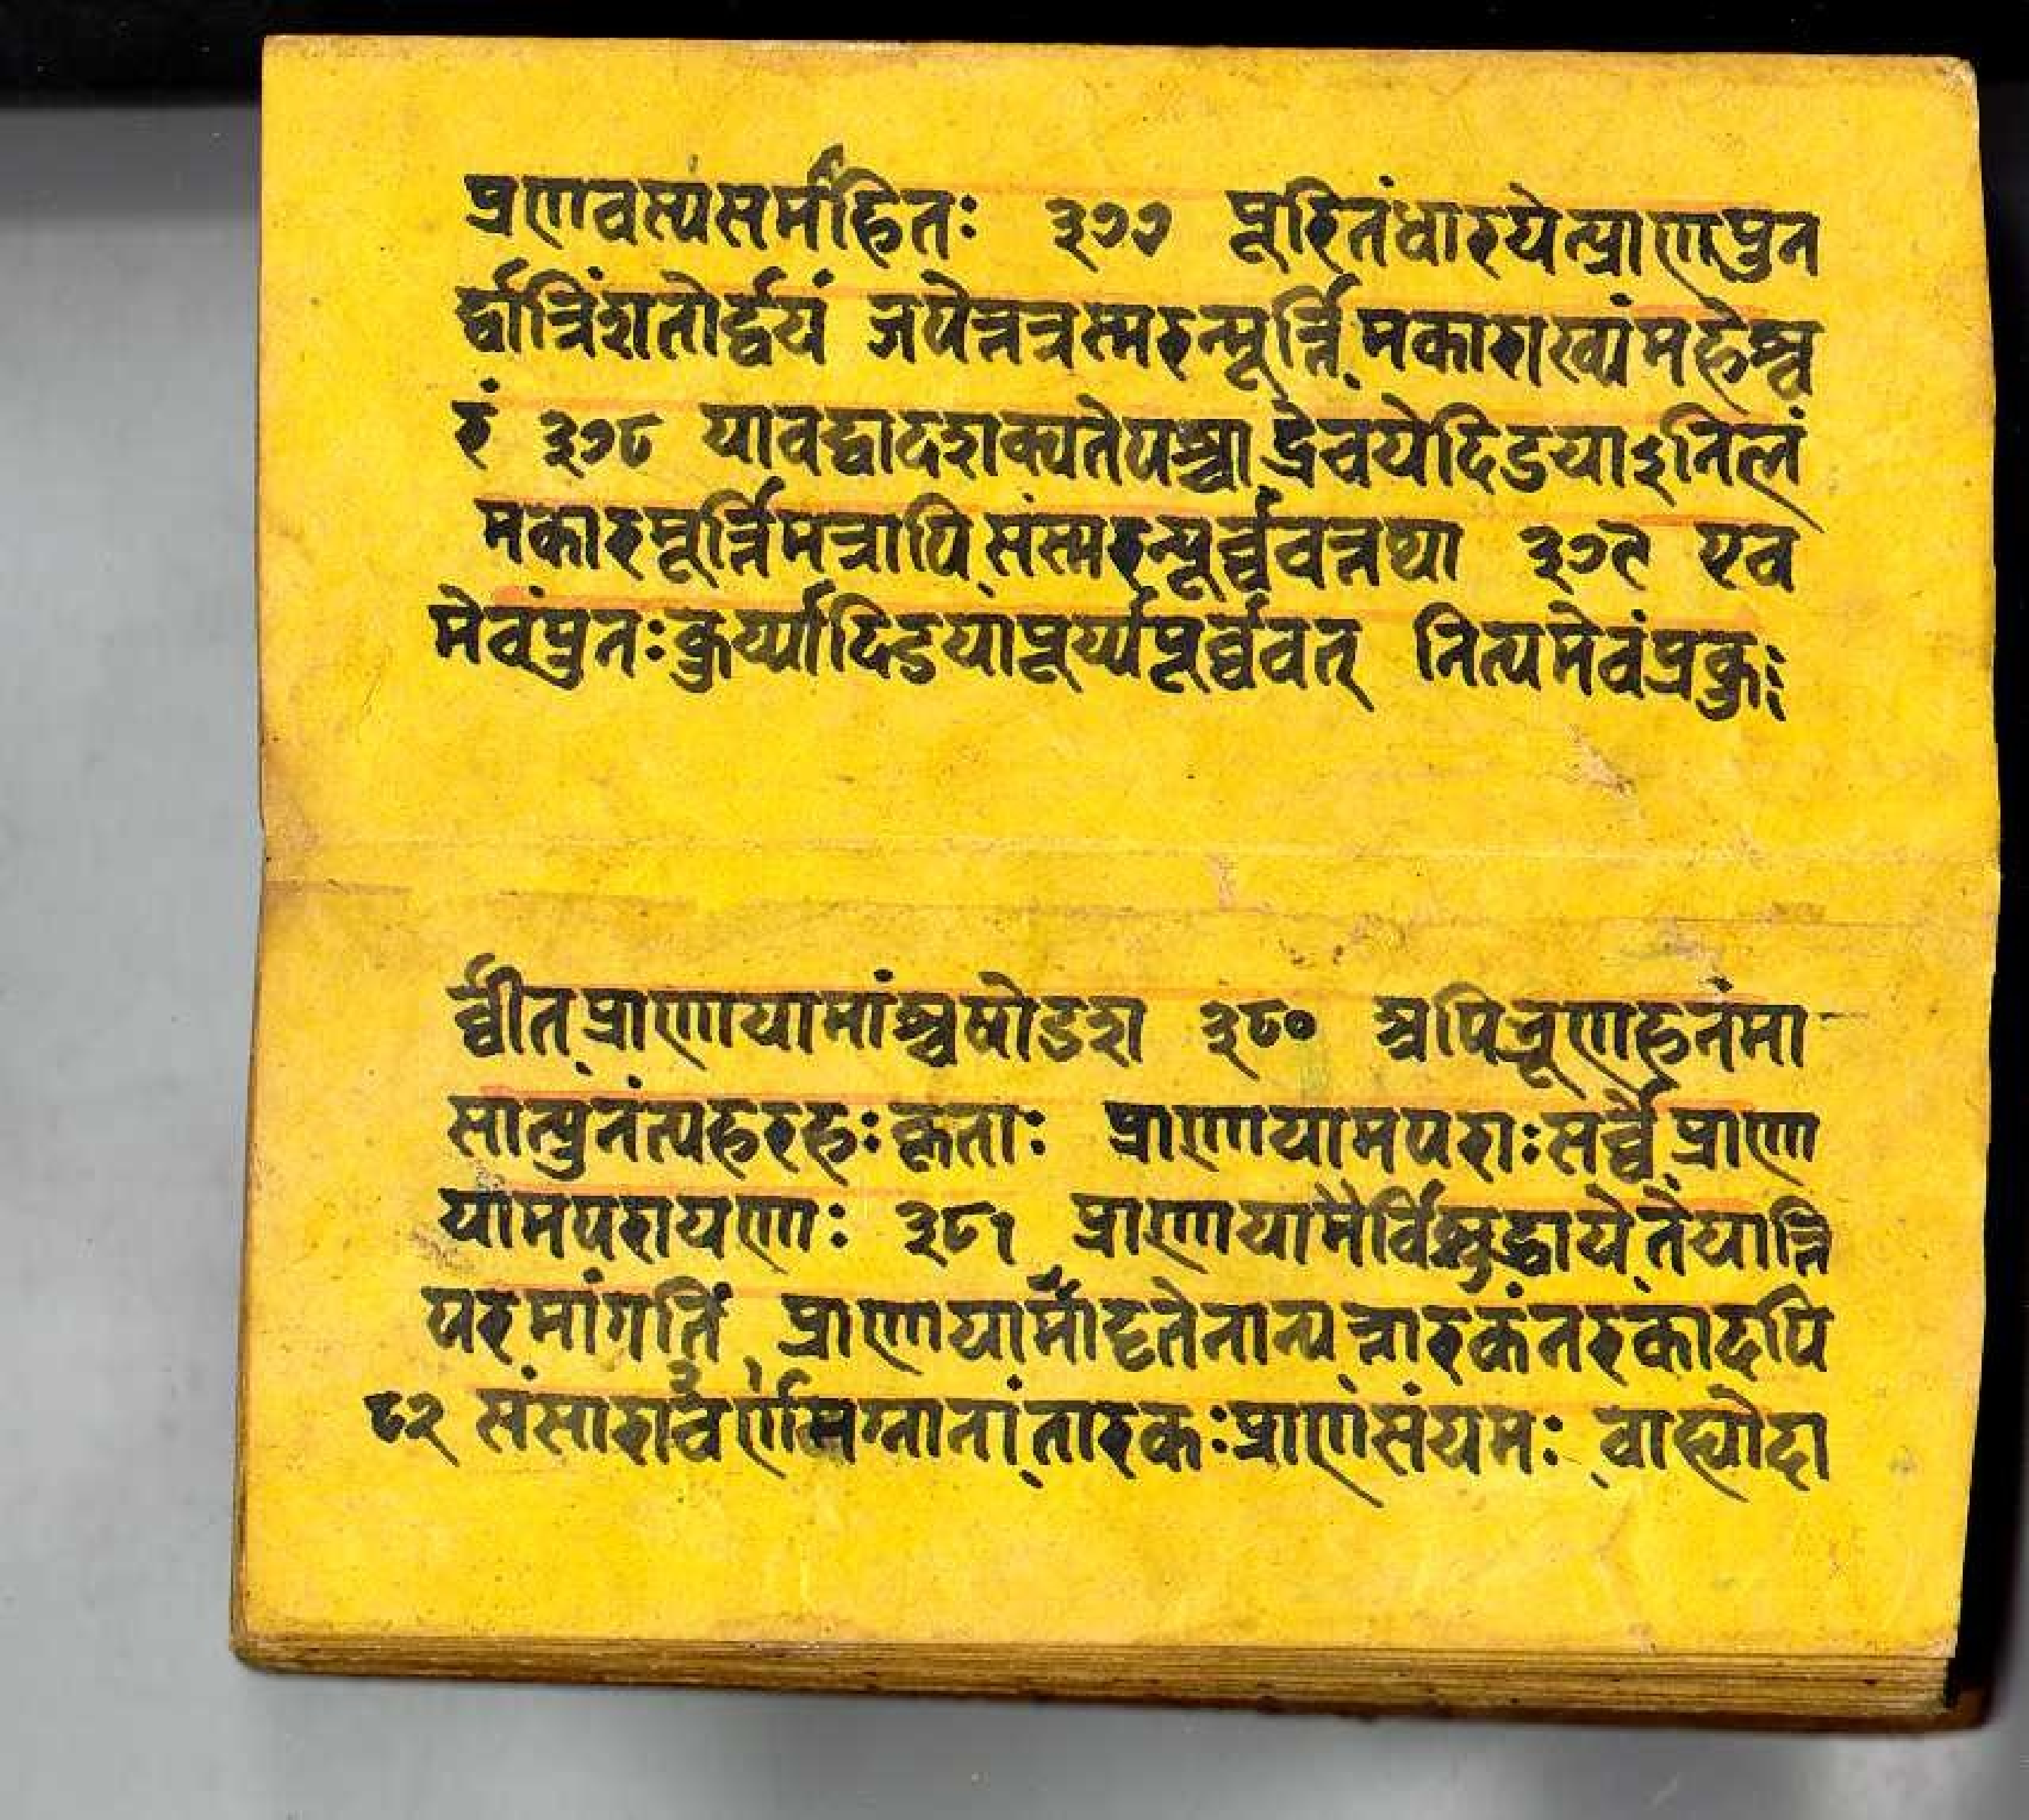 प्रणवस्यसमाहितः ३७७ पूरितंधारयेत्प्राणंपुन
र्द्वात्रिंशतोर्द्वयं जपेत्तत्रस्मरन्मूर्त्तिंमकाराख्यंमहेश्व
रं ३७८ यावद्वादशक्यतेपश्चाद्रेचयेदिडयाऽनिलं
मकारमूर्त्तिमत्रापिसंस्मरन्पूर्व्ववत्तथा ३७९ एव
मेवंपुनःकुर्य्यादिडयापूर्य्यपूर्व्ववत् नित्यमेवंप्रकु
र्व्वीतप्राणायामांश्चषोडश ३८० अपिभ्रूणहनंमा
सात्पुनंत्यहरहःकृताः प्राणायामपराःसर्व्वेप्राणा
यामपरायणाः ३८१ प्राणायामैर्विशुद्धायेतेयान्ति
परमांगतिं प्राणायामादृतेनान्यत्तारकंनरकादपि
८२ संसारार्णवमग्नानांतारकःप्राणसंयमः वाह्योदा